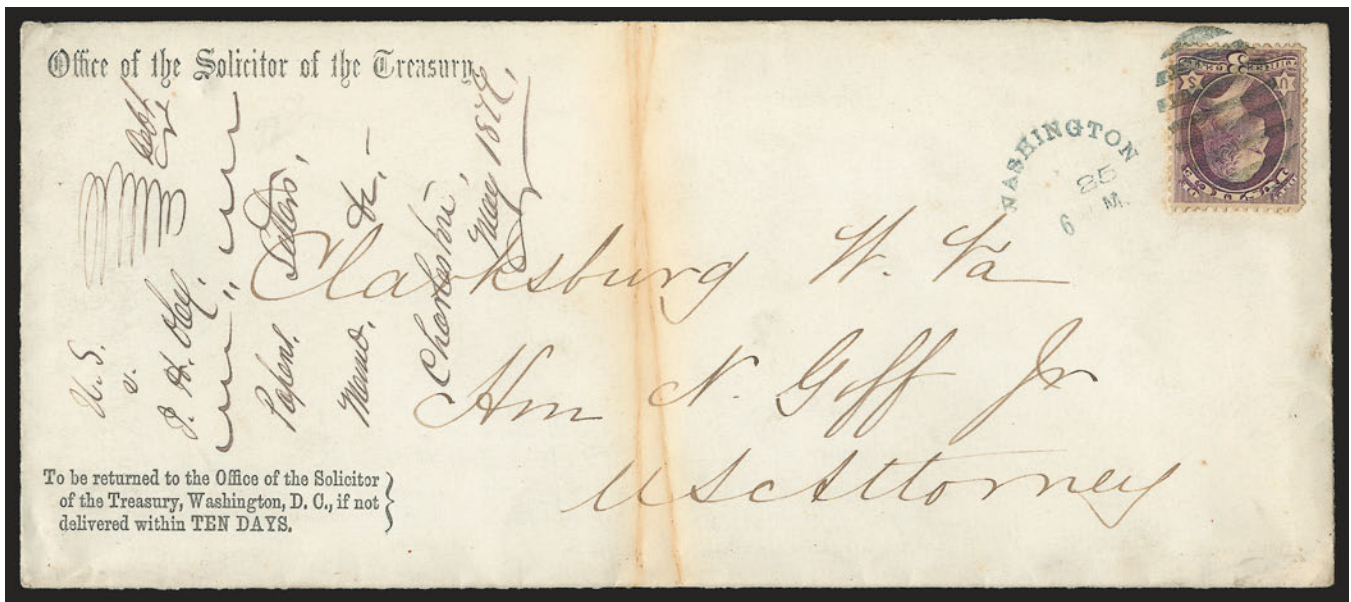 Office of the Solicitor of the Treasury,
U. S.
v.
J. H. Oley.
Debt
Papers,
Memo. &c. —
Charleston,
May 1872,
WASHINGTON
25
6 M.
3
U S
Clarksburg W. Va
Hon N. Goff Jr
US Attorney
To be returned to the Office of the Solicitor
of the Treasury, Washington, D. C., if not
delivered within TEN DAYS.